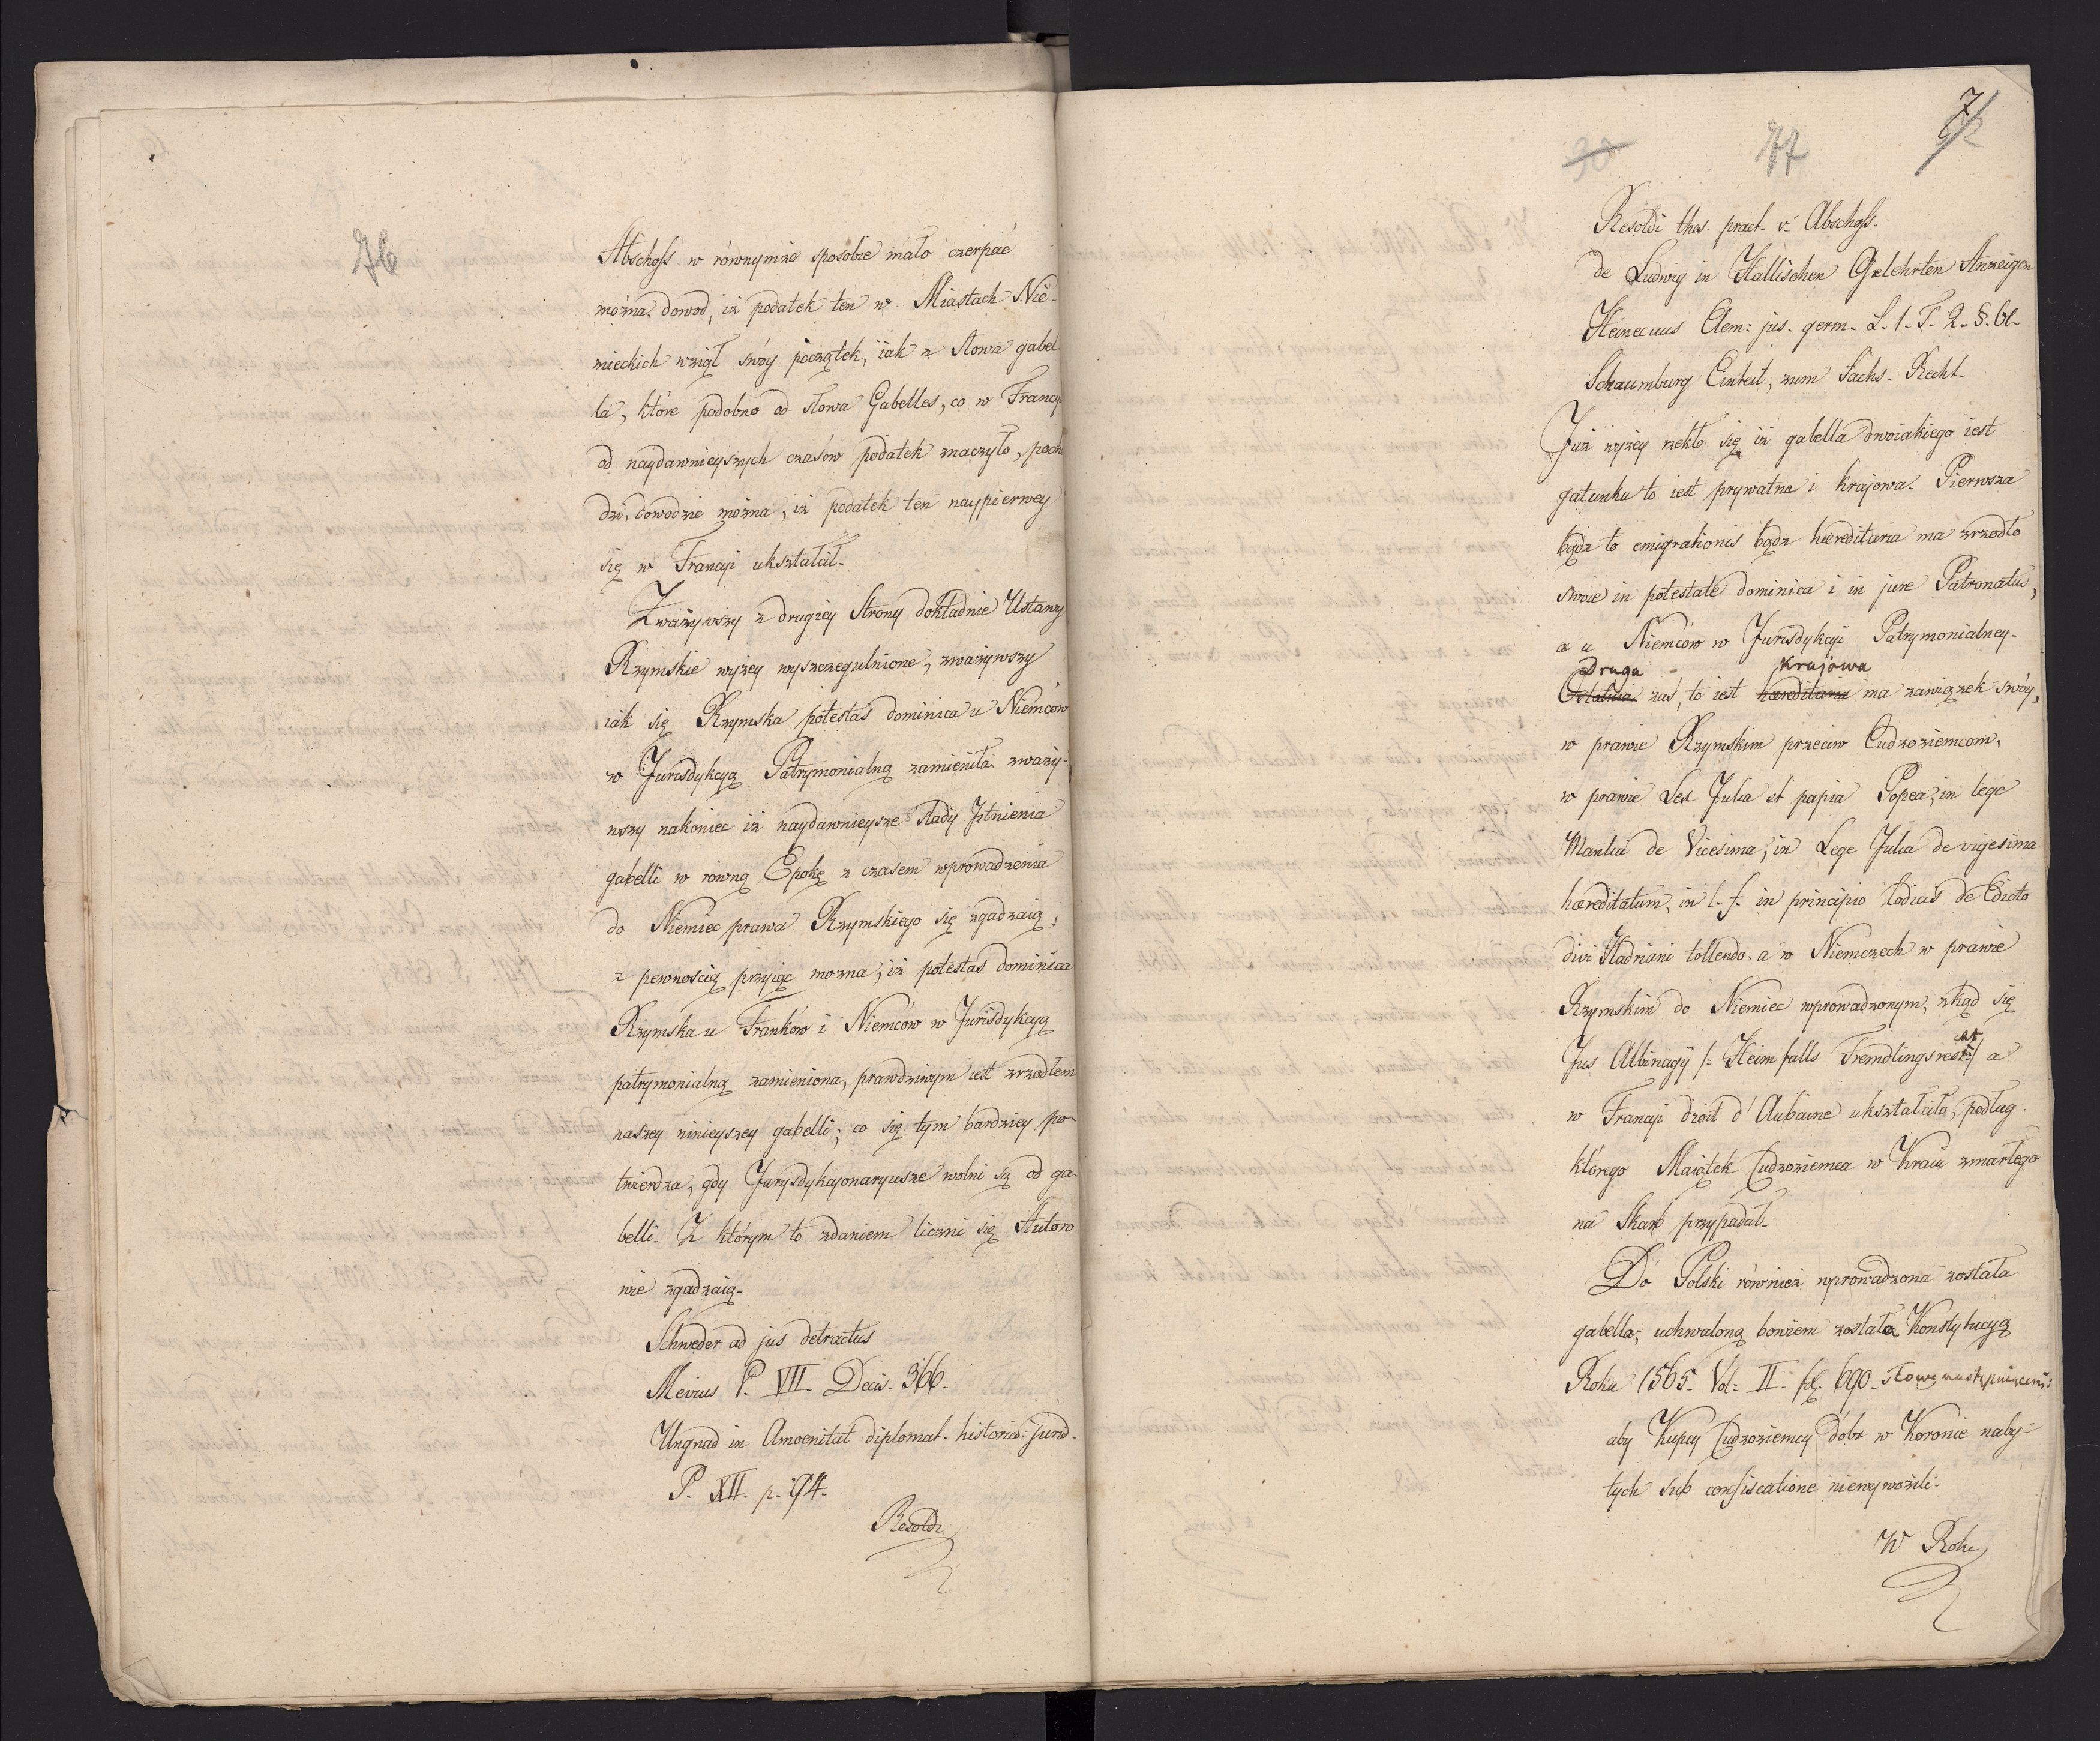 76
Abschoss w równymże sposobie mało czerpać
można dowod, iż podatek ten w Miastach Nie-
mieckich wziął swóy początek, iak z słowa gabel-
la, które podobno od słowa Gabelles, co w Francyi
od naydawnieyszych czasów podatek znaczyło, pocho
dzi, dowodzic można, iż podatek ten naypierwey
się w Francyi ukształcił.
Zważywszy z drugiey Strony dokładnie Ustawy
Rzymskie wyżey wyszczegulnione, zważywszy
iak się Rzymska potestas dominica u Niemców
w Jurisdykcyą Patrymonialną zamieniła zważy-
wszy nakoniec iż naydawnieysze slady Jstnienia
gabelli w równą Epokę z czasem wprowadzenia
do Niemiec prawa Rzymskiego się zgadzaią;
z pewnością przyiąc można, iż potestas dominica
Rzymska u Franków i Niemców w Jurisdykcyą
patrymonialną zamieniona, prawdziwym iest zrzodłem
naszey ninieyszey gabelli; co się tym bardziey po-
twierdza, gdy Jurysdykcyonaryusze wolni są od ga-
belli. Z którym to zdaniem liczni się Autoro
wie zgadzaią.
Schweder ad jus detractus
Mevius P. VII. Decis. 366.
Ungnad in Amoenitat diplomat. historico: jurid.
P. XII. p. 94.
Besoldi
30
77
7
Besoldi thes. pract. v: Abschoss.
de Ludwig in Hallischen Gelehrten Anzeigen
Heineccius Elem: jus. germ. L. 1. T. 2. §. 61.
Schaumburg Einleit, zum Sachs. Recht.
Już wyżey rzekło się iż gabella dwoiakiego iest
gatunku to iest prywatna i krajowa. Pierwsza
bądz to emigrationis bądz hæreditaria ma zrzodło
swoie in potestate dominica i in jure Patronatus,
a u Niemców w Jurisdykcyi Patrymonialney.
Druga krajowa
Ostatnia zaś, to iest hæreditaria ma zawiązek swóy,
w prawie Rzymskim przeciw Cudzoziemcom,
w prawie Lex Julia et papia Popea, in lege
Manlia de Vicesima, in Lege Julia de vigesima
hæreditatum, in l. f. in principio Codicis de Edicto
divi Hadriani tollendo. a w Niemczech w prawie
Rzymskim do Niemiec wprowadzonym, zkąd się
Jus Albinagÿ /: Heimfalls Fremdlingsrecht :/ a
w Francyi droit d'Aubaine ukształciło, podług
którego Maiątek Cudzoziemca w Kraiu zmarłego
na Skarb przypadał.
Do Polski również wprowadzona została
gabella; uchwaloną bowiem została Konstytucyą
Roku 1565. Vol: II. fol. 690. słowy następuiącemi:
aby Kupcy Cudzoziemcy dobr w Koronie naby-
tych sub confiscatione niewywozili.
W Roku